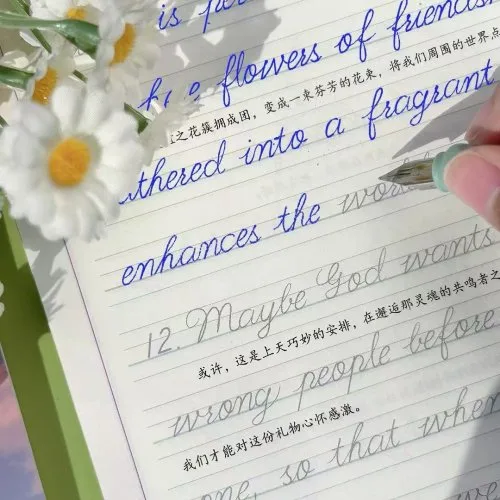 is
flowers of
之花簇拥成团，变成一束芬芳的花束，将我们周围的世界点
into a fragrant
enhances the world
12. Maybe God wants
或许，这是上天巧妙的安排，在邂逅那灵魂的共鸣者之
wrong people before
我们才能对这份礼物心怀感激。
one, so that when